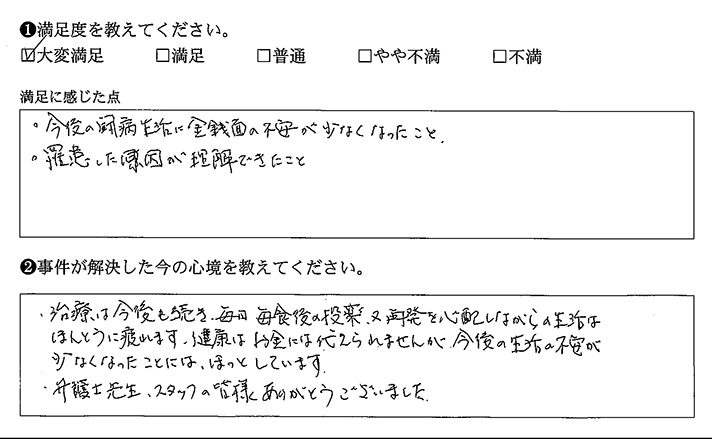 ❶満足度を教えてください。
☑大変満足 □満足 □普通 □やや不満 □不満
満足に感じた点
・今後の闘病生活に金銭面の不安が少なくなったこと.
・罹患した原因が理解できたこと
❷事件が解決した今の心境を教えてください。
・治療は今後も続き、毎日毎食後の投薬、又再発を心配しながらの生活は
ほんとうに疲れます。健康はお金には代えられませんが、今後の生活の不安が
少なくなったことには、ほっとしています.
・弁護士先生、スタッフの皆様、ありがとうございました.